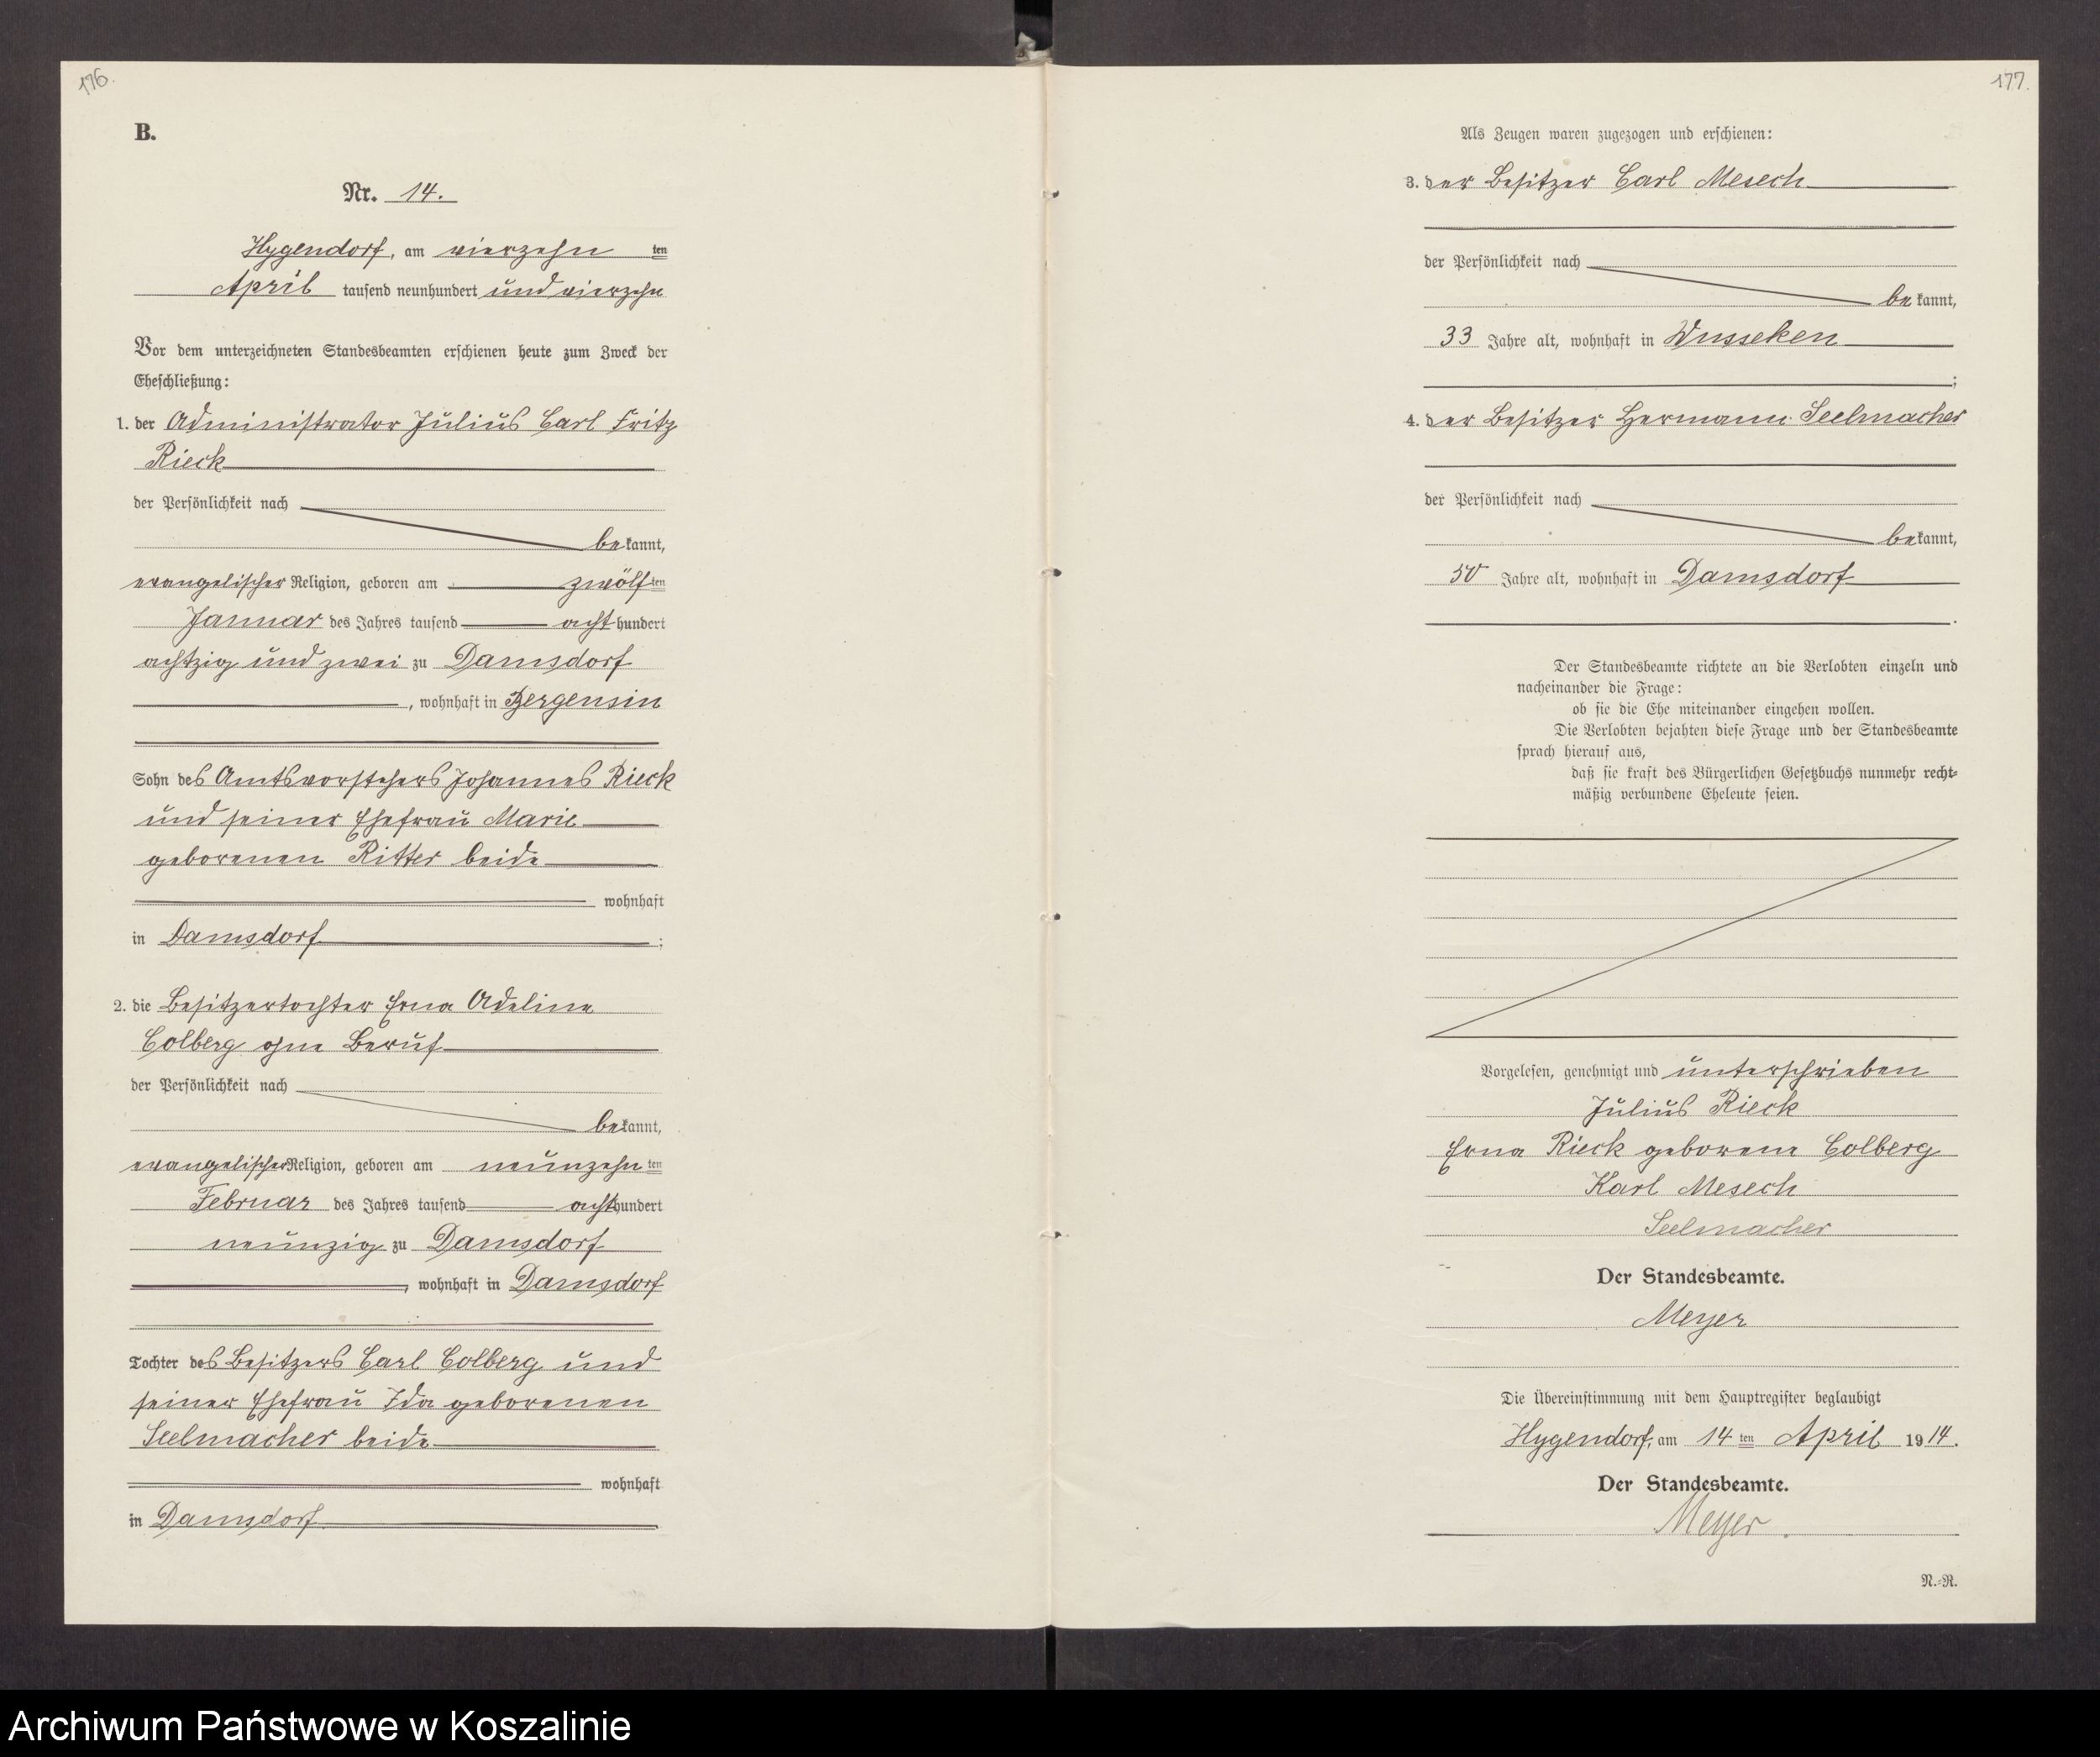 176.
B.
Nr. 14.
Hygendorf, am vierzehn ten
April tausend neunhundert und vierzehn
Vor dem unterzeichneten Standesbeamten erschienen heute zum Zweck der
Eheschließung:
1. der Administrator Julius Carl Fritz
Rieck
der Persönlichkeit nach
be kannt,
evangelischer Religion, geboren am zwölf ten
Januar des Jahres tausend acht hundert
achtzig und zwei zu Damsdorf
, wohnhaft in Bergensin
Sohn des Amtsvorstehers Johannes Rieck
und seiner Ehefrau Marie
geborenen Ritter beide
wohnhaft
in Damsdorf ;
2. die Besitzertochter Erna Adeline
Colberg ohne Beruf
der Persönlichkeit nach
be kannt,
evangelischer Religion, geboren am neunzehn ten
Februar des Jahres tausend acht hundert
neunzig zu Damsdorf
, wohnhaft in Damsdorf
Tochter des Besitzers Carl Colberg und
seiner Ehefrau Ida geborenen
Seelmacher beide
wohnhaft
in Damsdorf
177.
Als Zeugen waren zugezogen und erschienen:
3. der Besitzer Carl Mesech
der Persönlichkeit nach
be kannt,
33 Jahre alt, wohnhaft in Wusseken
;
4. der Besitzer Hermann Seelmacher
der Persönlichkeit nach
be kannt,
50 Jahre alt, wohnhaft in Damsdorf
.
Der Standesbeamte richtete an die Verlobten einzeln und
nacheinander die Frage:
ob sie die Ehe miteinander eingehen wollen.
Die Verlobten bejahten diese Frage und der Standesbeamte
sprach hierauf aus,
daß sie kraft des Bürgerlichen Gesetzbuchs nunmehr recht-
mäßig verbundene Eheleute seien.
Vorgelesen, genehmigt und unterschrieben
Julius Rieck
Erna Rieck geborene Colberg
Karl Mesech
Seelmacher
Der Standesbeamte.
Meyer
Die Übereinstimmung mit dem Hauptregister beglaubigt
Hygendorf, am 14 ten April 19 14.
Der Standesbeamte.
Meyer.
N.-R.
Archiwum Państwowe w Koszalinie